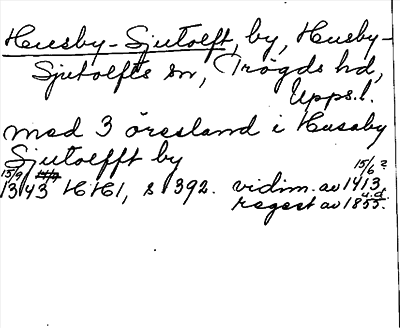 Husby-Sjutolft, by, Husby-
Sjutolfts sn, Trögds hd,
Upps.l.
med 3 öresland i Husaby
Sjutoefft by
15/9 1343 HH1, s 392. vidim. av 15/6? 1413
u.d.
regest av 1855.